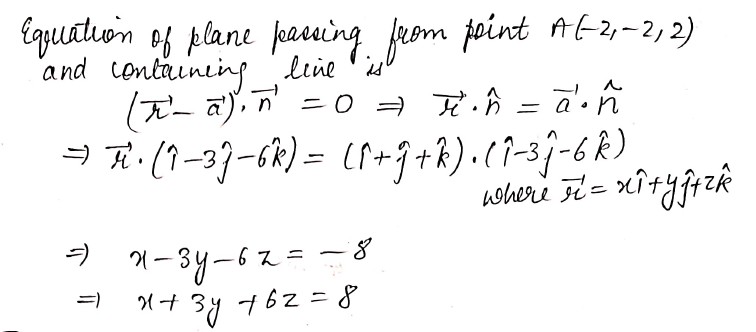 Equation of plane passing from point A(-2,-2,2)
and containing line is
(r⃗ - a⃗).n⃗ = 0 ⇒ r⃗.n̂ = a⃗.n̂
⇒ r⃗.(î-3ĵ-6k̂) = (î+ĵ+k̂).(î-3ĵ-6k̂)
where r⃗ = xî+yĵ+zk̂
⇒ x-3y-6z = -8
⇒ x+3y+6z = 8